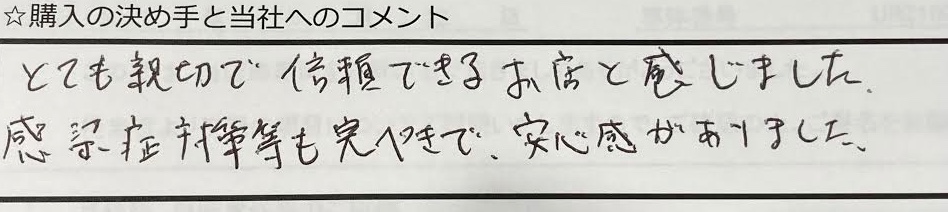 ☆購入の決め手と当社へのコメント
とても親切で信頼できるお店と感じました。
感染症対策等も完ぺきで、安心感がありました。